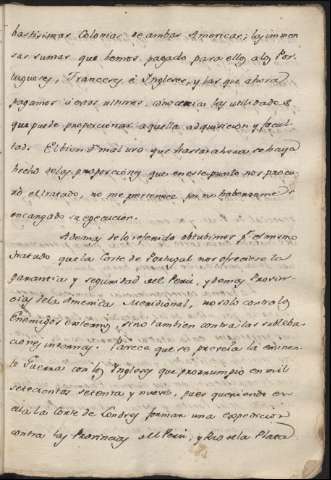 bastisimas Colonias de ambas Americas; las inmen
sas sumas que hemos pagado para ellos a los Por-
tugueses, Franceses, è Ingleses, y las que ahora
pagamos à estos ultimos, conocerà las utilidades
que puede proporcionar aquella adquisicion y facul
tad. El bien ò mal uso que hasta ahora se haya
hecho de las proporciones que en este punto nos procu
rò el tratado, no me pertenece por no haberseme
encargado su egecucion.
Ademas de lo referido obtubimos pr. el mismo
tratado que la Corte de Portugal nos ofreciese la
garantia y seguridad del Perù, y demas Provin-
cias de la America Meridional, no solo contra los
Enemigos externos, sino tambien contra las subleba
ciones internas. Parece que se preveìa la eminen
te Guerra con los Ingleses que prorrumpio en mil
setecientos setenta y nueve, pues queriendo en
ella la Corte de Londres formar una expedicion
contra las Provincias del Perù, y Rio de la Plata